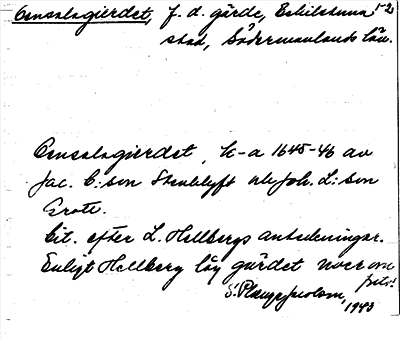 Censalagierdet, f. d. gärde, Eskilstuna 1-2
stad, Södermanlands län.
Censalagierdet, k-a 1645-46 av
Jac. C:son Stenklyft ele Joh. L:son
Grote.
Cit. efter L. Hellbergs anteckningar.
Enligt Hellberg låg gärdet norr om
S.
1943